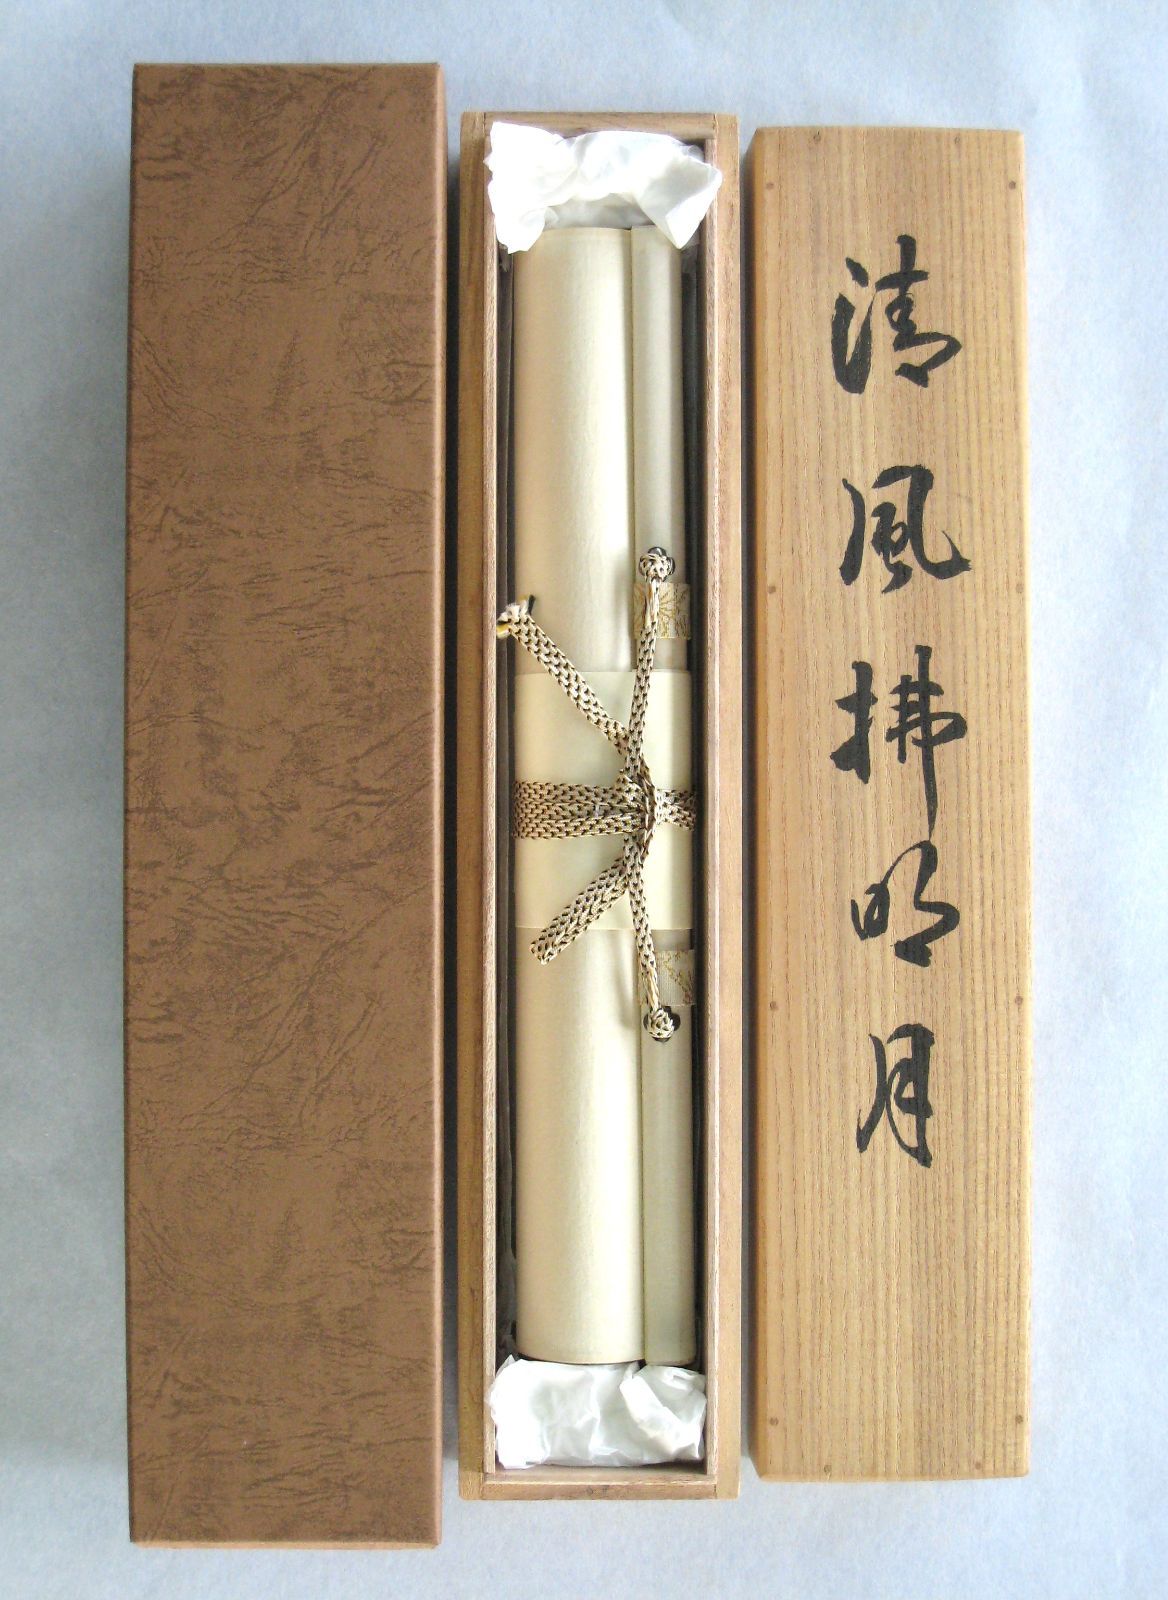 清風拂明月